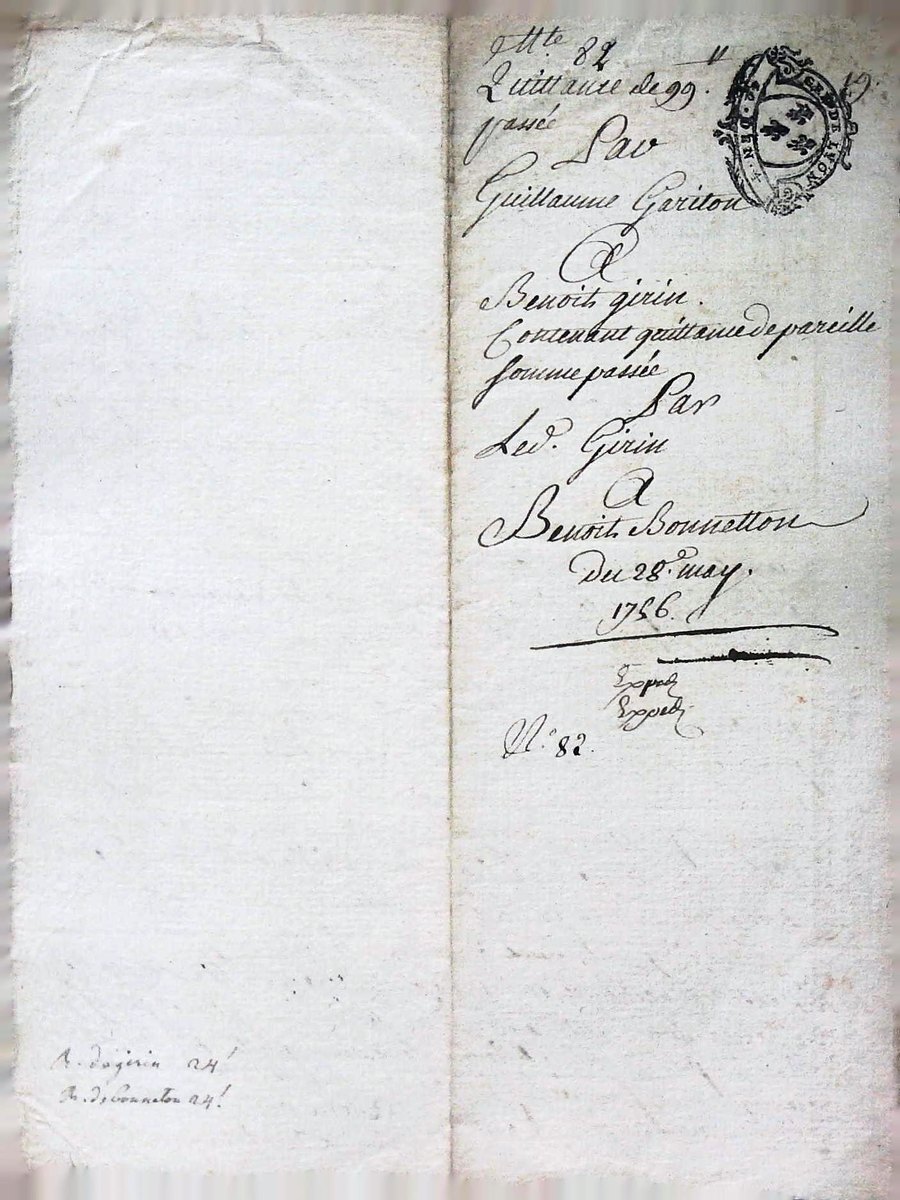 82
Quittance de 99.
passée
Par
Guillaume Gariton
A
Benoit girin.
Contenant quittance de pareille
somme passée
Par
Led. Girin
A
Benoit Bonnetton
Du 28.e may.
1756.
Exped
Exped
N.o 82.
GEN. DE LYON
R. de girin 24
R. de bonneton 24